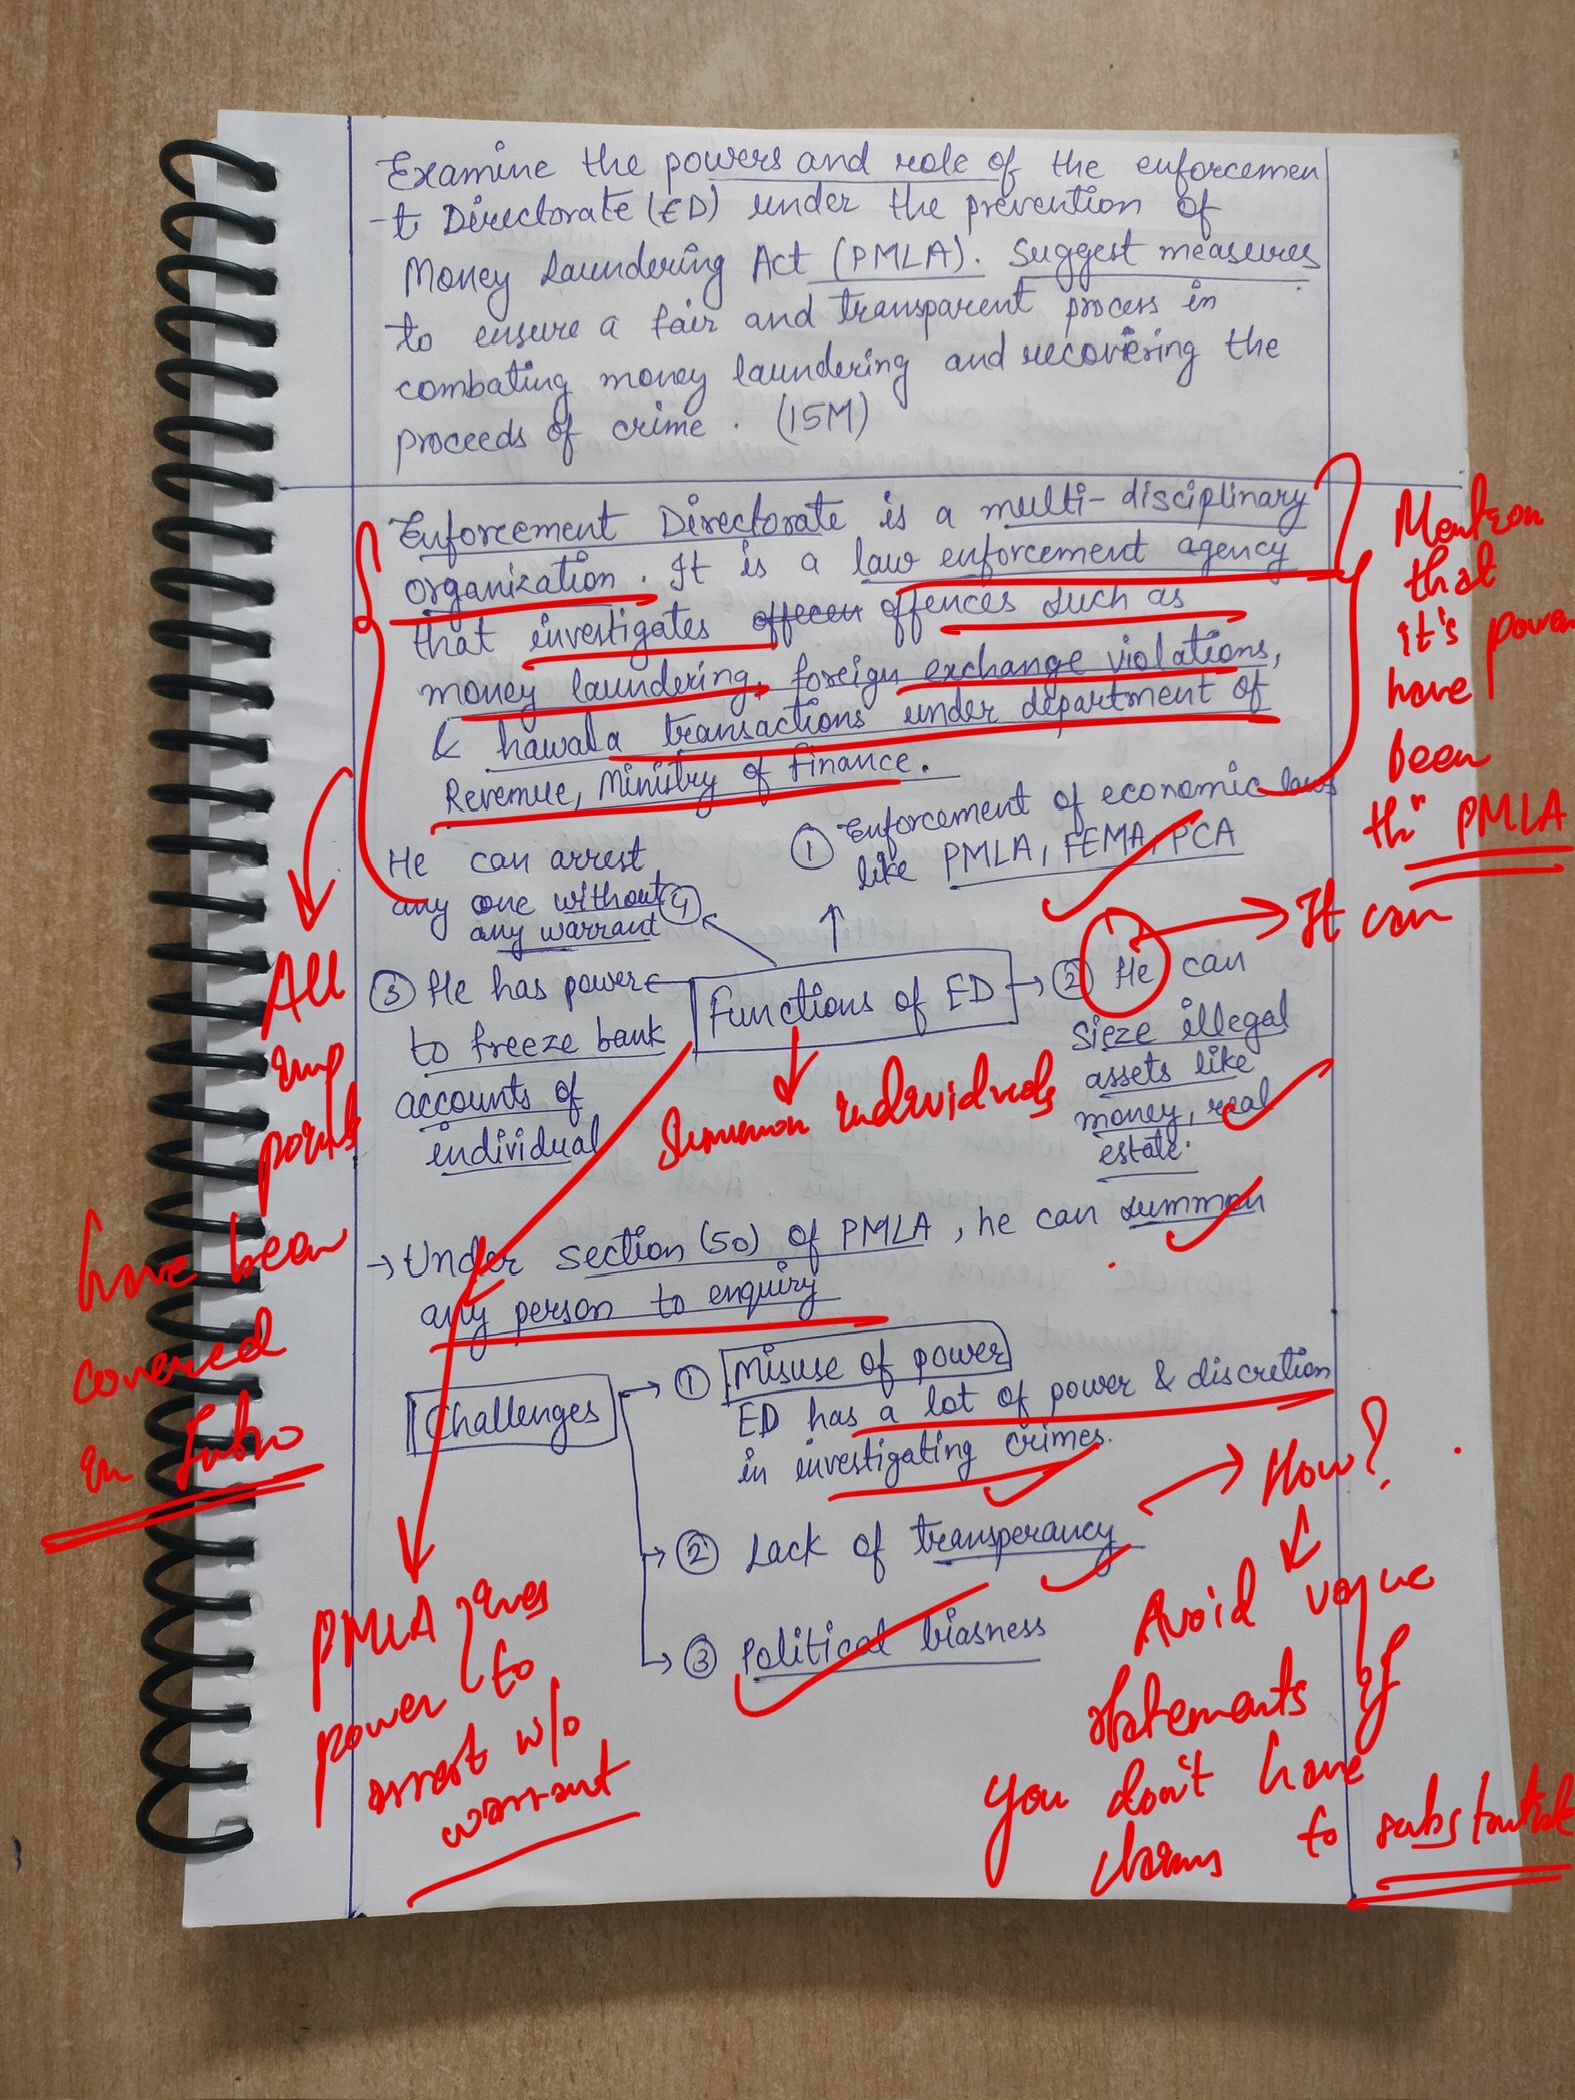 Examine the powers and role of the enforcemen
-t Directorate (ED) under the prevention of
Money Laundering Act (PMLA). Suggest measures
to ensure a fair and transparent process in
combating money laundering and recovering the
proceeds of crime. (15M)
Enforcement Directorate is a multi-disciplinary
organization. It is a law enforcement agency
that investigates offences such as
money laundering, foreign exchange violations,
& hawala transactions under department of
Revenue, Ministry of Finance.
Mention
that
it's power
have
been
thr PMLA
① Enforcement of economic laws
like PMLA, FEMA, PCA
He can arrest
any one without ④
any warrant
All
imp
points
have been
covered
in Intro
③ He has power
to freeze bank
accounts of
individual
Functions of ED
② He can
sieze illegal
assets like
money, real
estate.
It can
Summon individuals
→ Under section (50) of PMLA, he can summon
any person to enquiry
Challenges
① Misuse of power
ED has a lot of power & discretion
in investigating crimes.
② Lack of transperancy
③ Political biasness
How?
Avoid vague
statements if
you don't have
to substantiate
PMLA gives
power to
arrest w/o
warrant